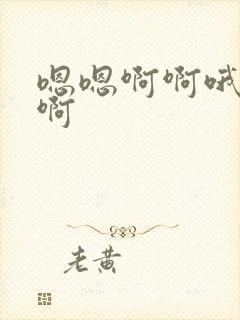 嗯嗯啊啊哦
啊
老黄